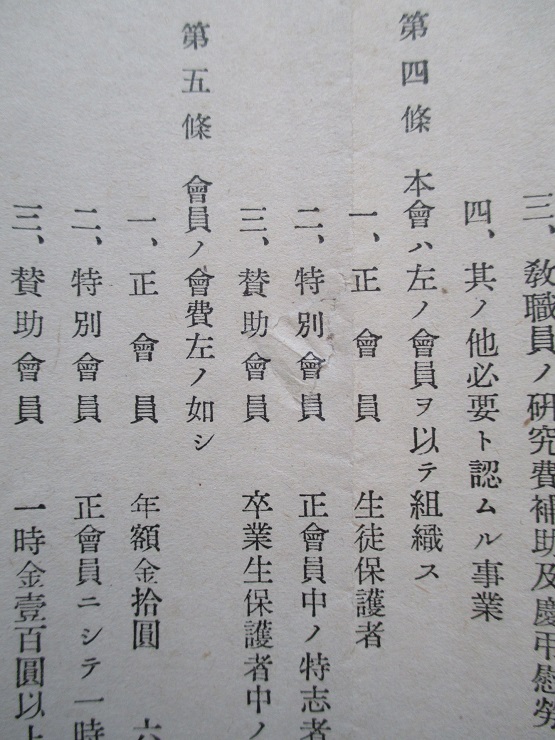 三、敎職員ノ硏究費補助及慶弔慰勞
四、其ノ他必要ト認ムル事業
第四條 本會ハ左ノ會員ヲ以テ組織ス
一、正會員 生徒保護者
二、特別會員 正會員中ノ特志者
三、贊助會員 卒業生保護者中ノ
第五條 會員ノ會費左ノ如シ
一、正會員 年額金拾圓 六
二、特別會員 正會員ニシテ一時
三、贊助會員 一時金壹百圓以上